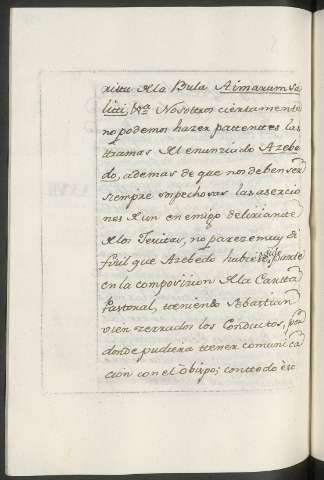 ritu de la Bula Aimarum Sa-
liti, &ra Nosotros ciertamente
no podemos hazer pattentes las
ttramas del enunziado Azebe-
do, ademas de que no deben ser
siempre sospechosas las asercio
nes de un enemigo delirante
de los Jesuitas, no pareze muy di
fizil que Azebedo hubiese parte
en la composizion de la Cartta
Pasttoral, tteniendo Sebasttian
vien zerrados los Conducttos, por
donde pudiera ttener comunica
cion con el Obispo; con ttodo eso